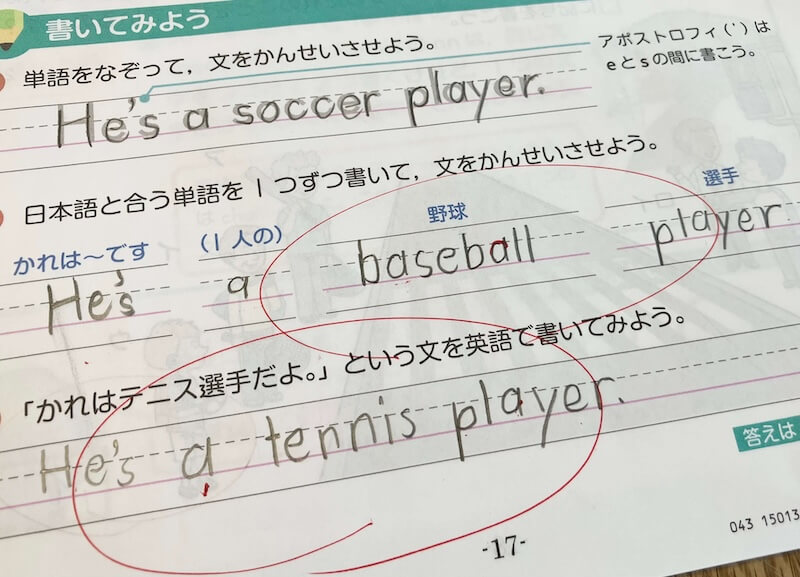 書いてみよう
単語をなぞって，文をかんせいさせよう。
アポストロフィ（'）は
eとsの間に書こう。
He's a soccer player.
日本語と合う単語を1つずつ書いて，文をかんせいさせよう。
かれは〜です （1人の） 野球 選手
He's a baseball player
「かれはテニス選手だよ。」という文を英語で書いてみよう。
He's a tennis player.
答えは
-17-
043 15013